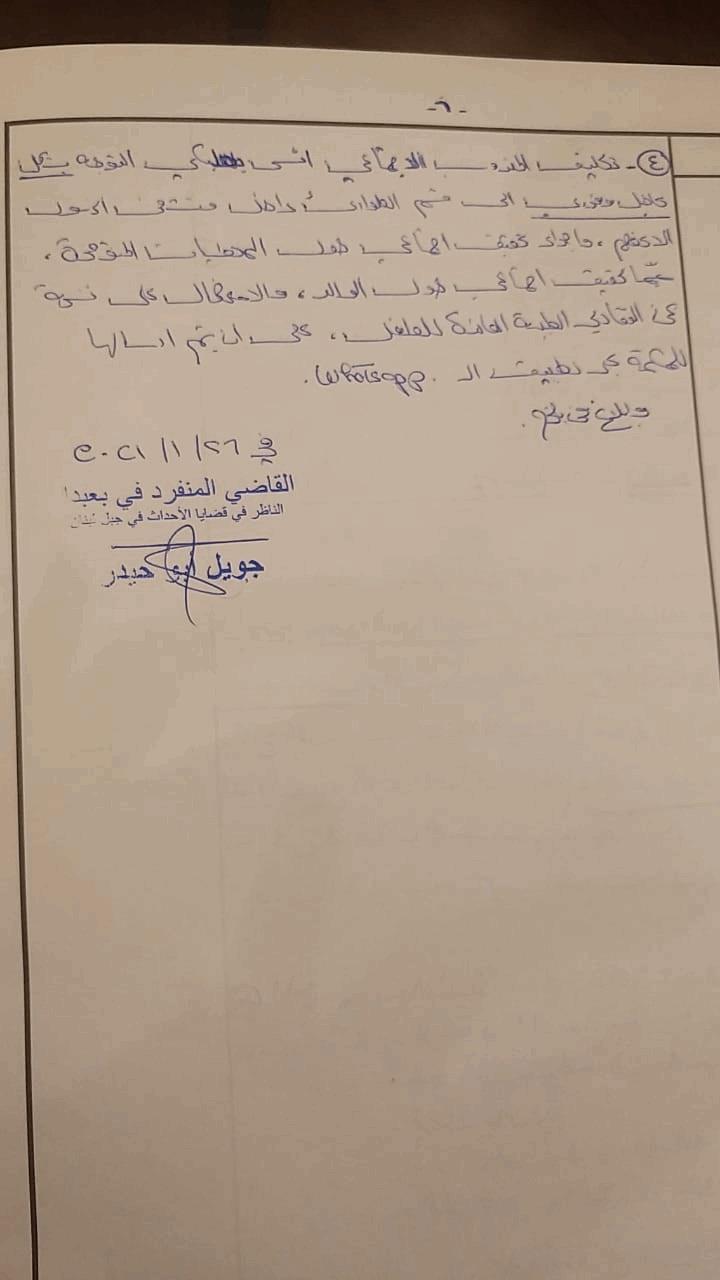 -٦-
④- تكليف المندوب الاجتماعي انسي بعلبكي التوجه بشكل
عاجل وفوري الى قسم الطوارئ داخل مستشفى
، واجراء تحقيق اجتماعي حول المعطيات المتوفرة،
كما تحقيق اجتماعي حول الوالد، والاستحصال على نسخة
عن التقارير الطبية العائدة للطفل، على ان يتم ارسالها
للمحكمة عبر تطبيق الـ Whatsapp.
في ٢٠٢١/١/٢٦
القاضي المنفرد في بعبدا
الناظر في قضايا الأحداث في جبل لبنان
جويل أبو حيدر